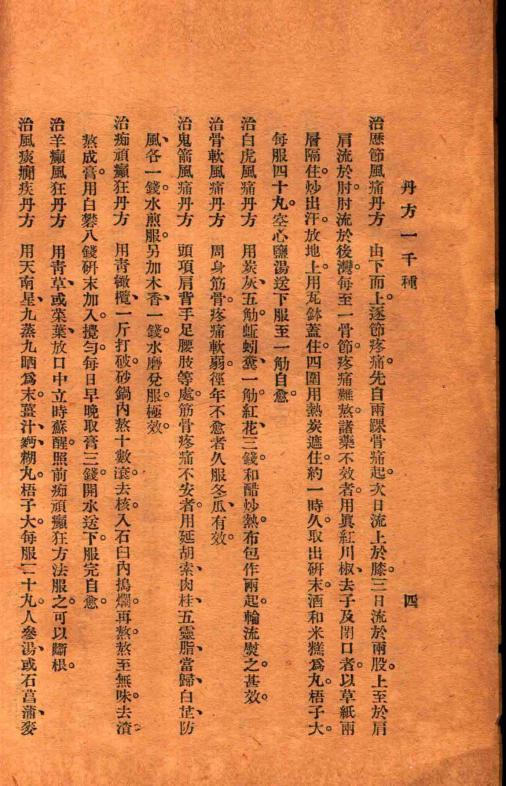 丹方一千種 四
治歷節風痛丹方 由下而上。逐節疼痛。先自兩踝骨痛起。次日流上於膝。三日流於兩股。上至於肩
肩流於肘。肘流於後灣。每至一骨節疼痛難熬。諸藥不效者。用眞紅川椒、去子及閉口者。以草紙兩
層隔住。炒出汗。放地上。用瓦鉢蓋住。四圍用熱炭遮住。約一時久。取出硏末。酒和米糕爲丸。梧子大。
每服四十丸。空心鹽湯送下。服至一觔自愈。
治白虎風痛丹方 用炭灰五觔、蚯蚓糞一觔、紅花三錢、和醋炒熱。布包作兩起。輪流熨之。甚效。
治骨軟風痛丹方 周身筋骨疼痛軟弱。徑年不愈者。久服冬瓜有效。
治鬼箭風痛丹方 頭項肩背手足腰肢等處。筋骨疼痛不安者。用延胡索、肉桂、五靈脂、當歸、白芷、防
風、各一錢。水煎服。另加木香一錢。水磨兌服極效。
治痴頑癲狂丹方 用青橄欖一斤打破。砂鍋內熬十數滾。去核。入石臼內搗爛。再熬。熬至無味去渣。
熬成膏。用白礬八錢硏末加入攪勻。每日早晚取膏三錢。開水送下。服完自愈。
治羊癲風狂丹方 用青草、或菜葉、放口中立時蘇醒。照前痴頑癲狂方法服之。可以斷根。
治風痰癇疾丹方 用天南星、九蒸九晒爲末。薑汁、麪糊丸。梧子大。每服二十丸。人參湯、或石菖蒲、麥